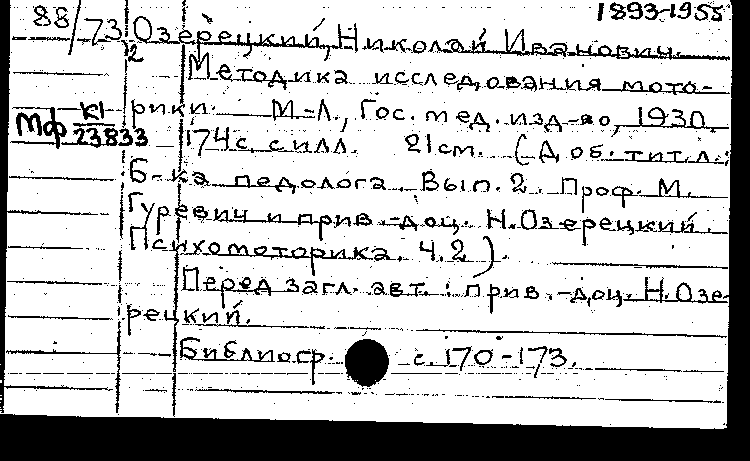 88/73 1893-1955
2
Озерецкий, Николай Иванович.
Методика исследования мото-
рики. М.-Л., Гос. мед. изд-во, 1930.
Мф К1/23833
174 с. с илл. 21 см. (Доб. тит. л.:
Б-ка педолога. Вып. 2. Проф. М.
Гуревич и прив.-доц. Н. Озерецкий.
Психомоторика. Ч. 2).
Перед загл. авт.: прив.-доц. Н. Озе-
рецкий.
Библиогр. с. 170-173.